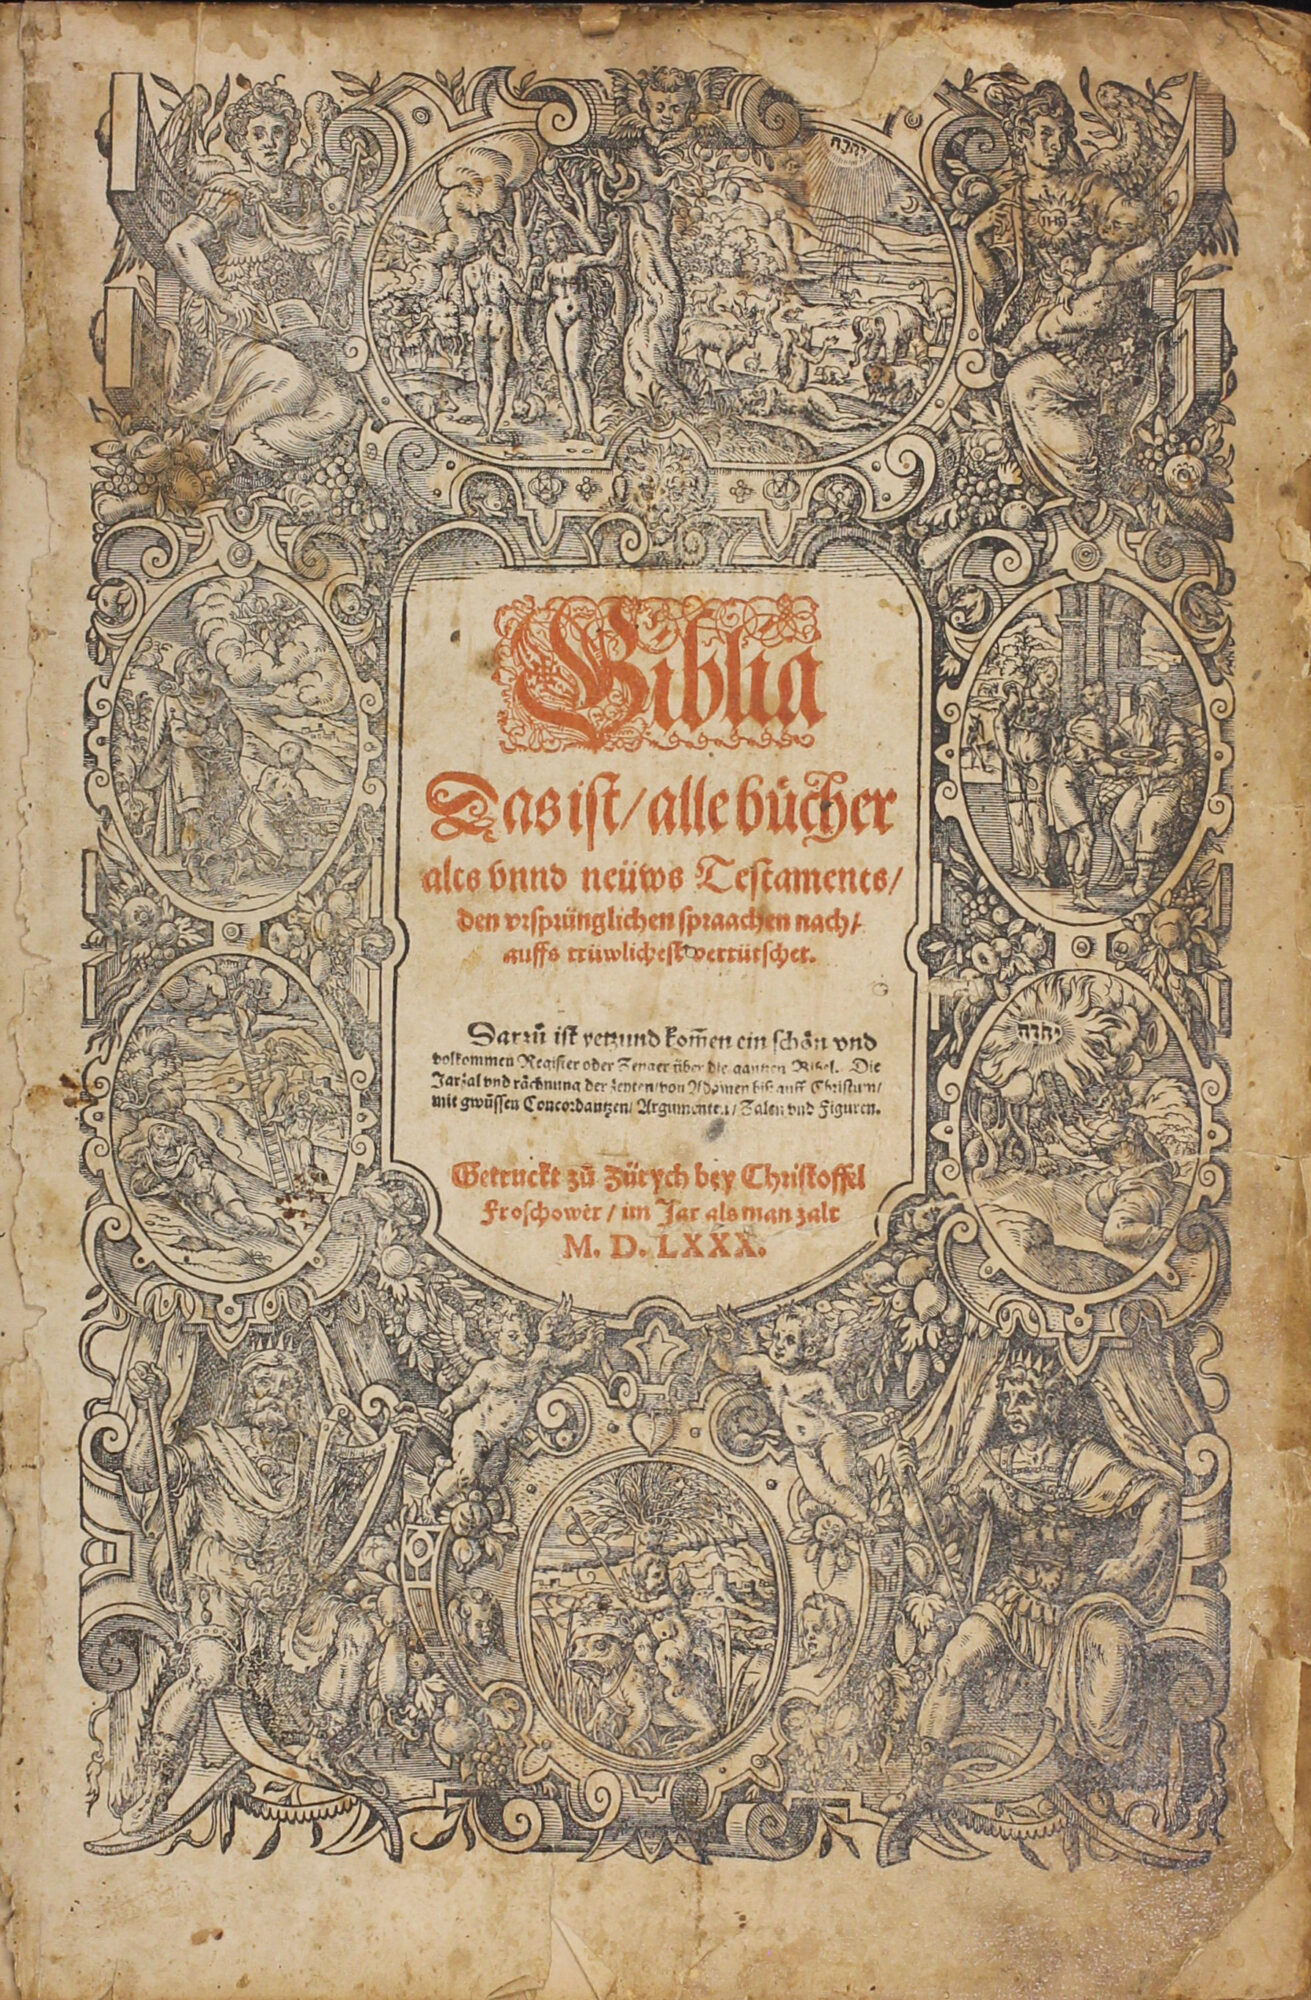 יהוה
IHS
Biblia
Das ist / alle bücher
alts vnnd neüws Testaments /
den vrsprünglichen spraachen nach /
auffs trüwlichest vertütschet.
Darzů ist yetzund kom̄en ein schön vnd
volkommen Register oder Zeyger über die gantzen Bibel. Die
Jarzal vnd rächnung der zeyten / von Adamen biß auff Christum /
mit gwüssen Concordantzen / Argumenten / Zalen vnd Figuren.
יהוה
Getruckt zů Zürych bey Christoffel
Froschower / im Jar als man zalt
M. D. LXXX.